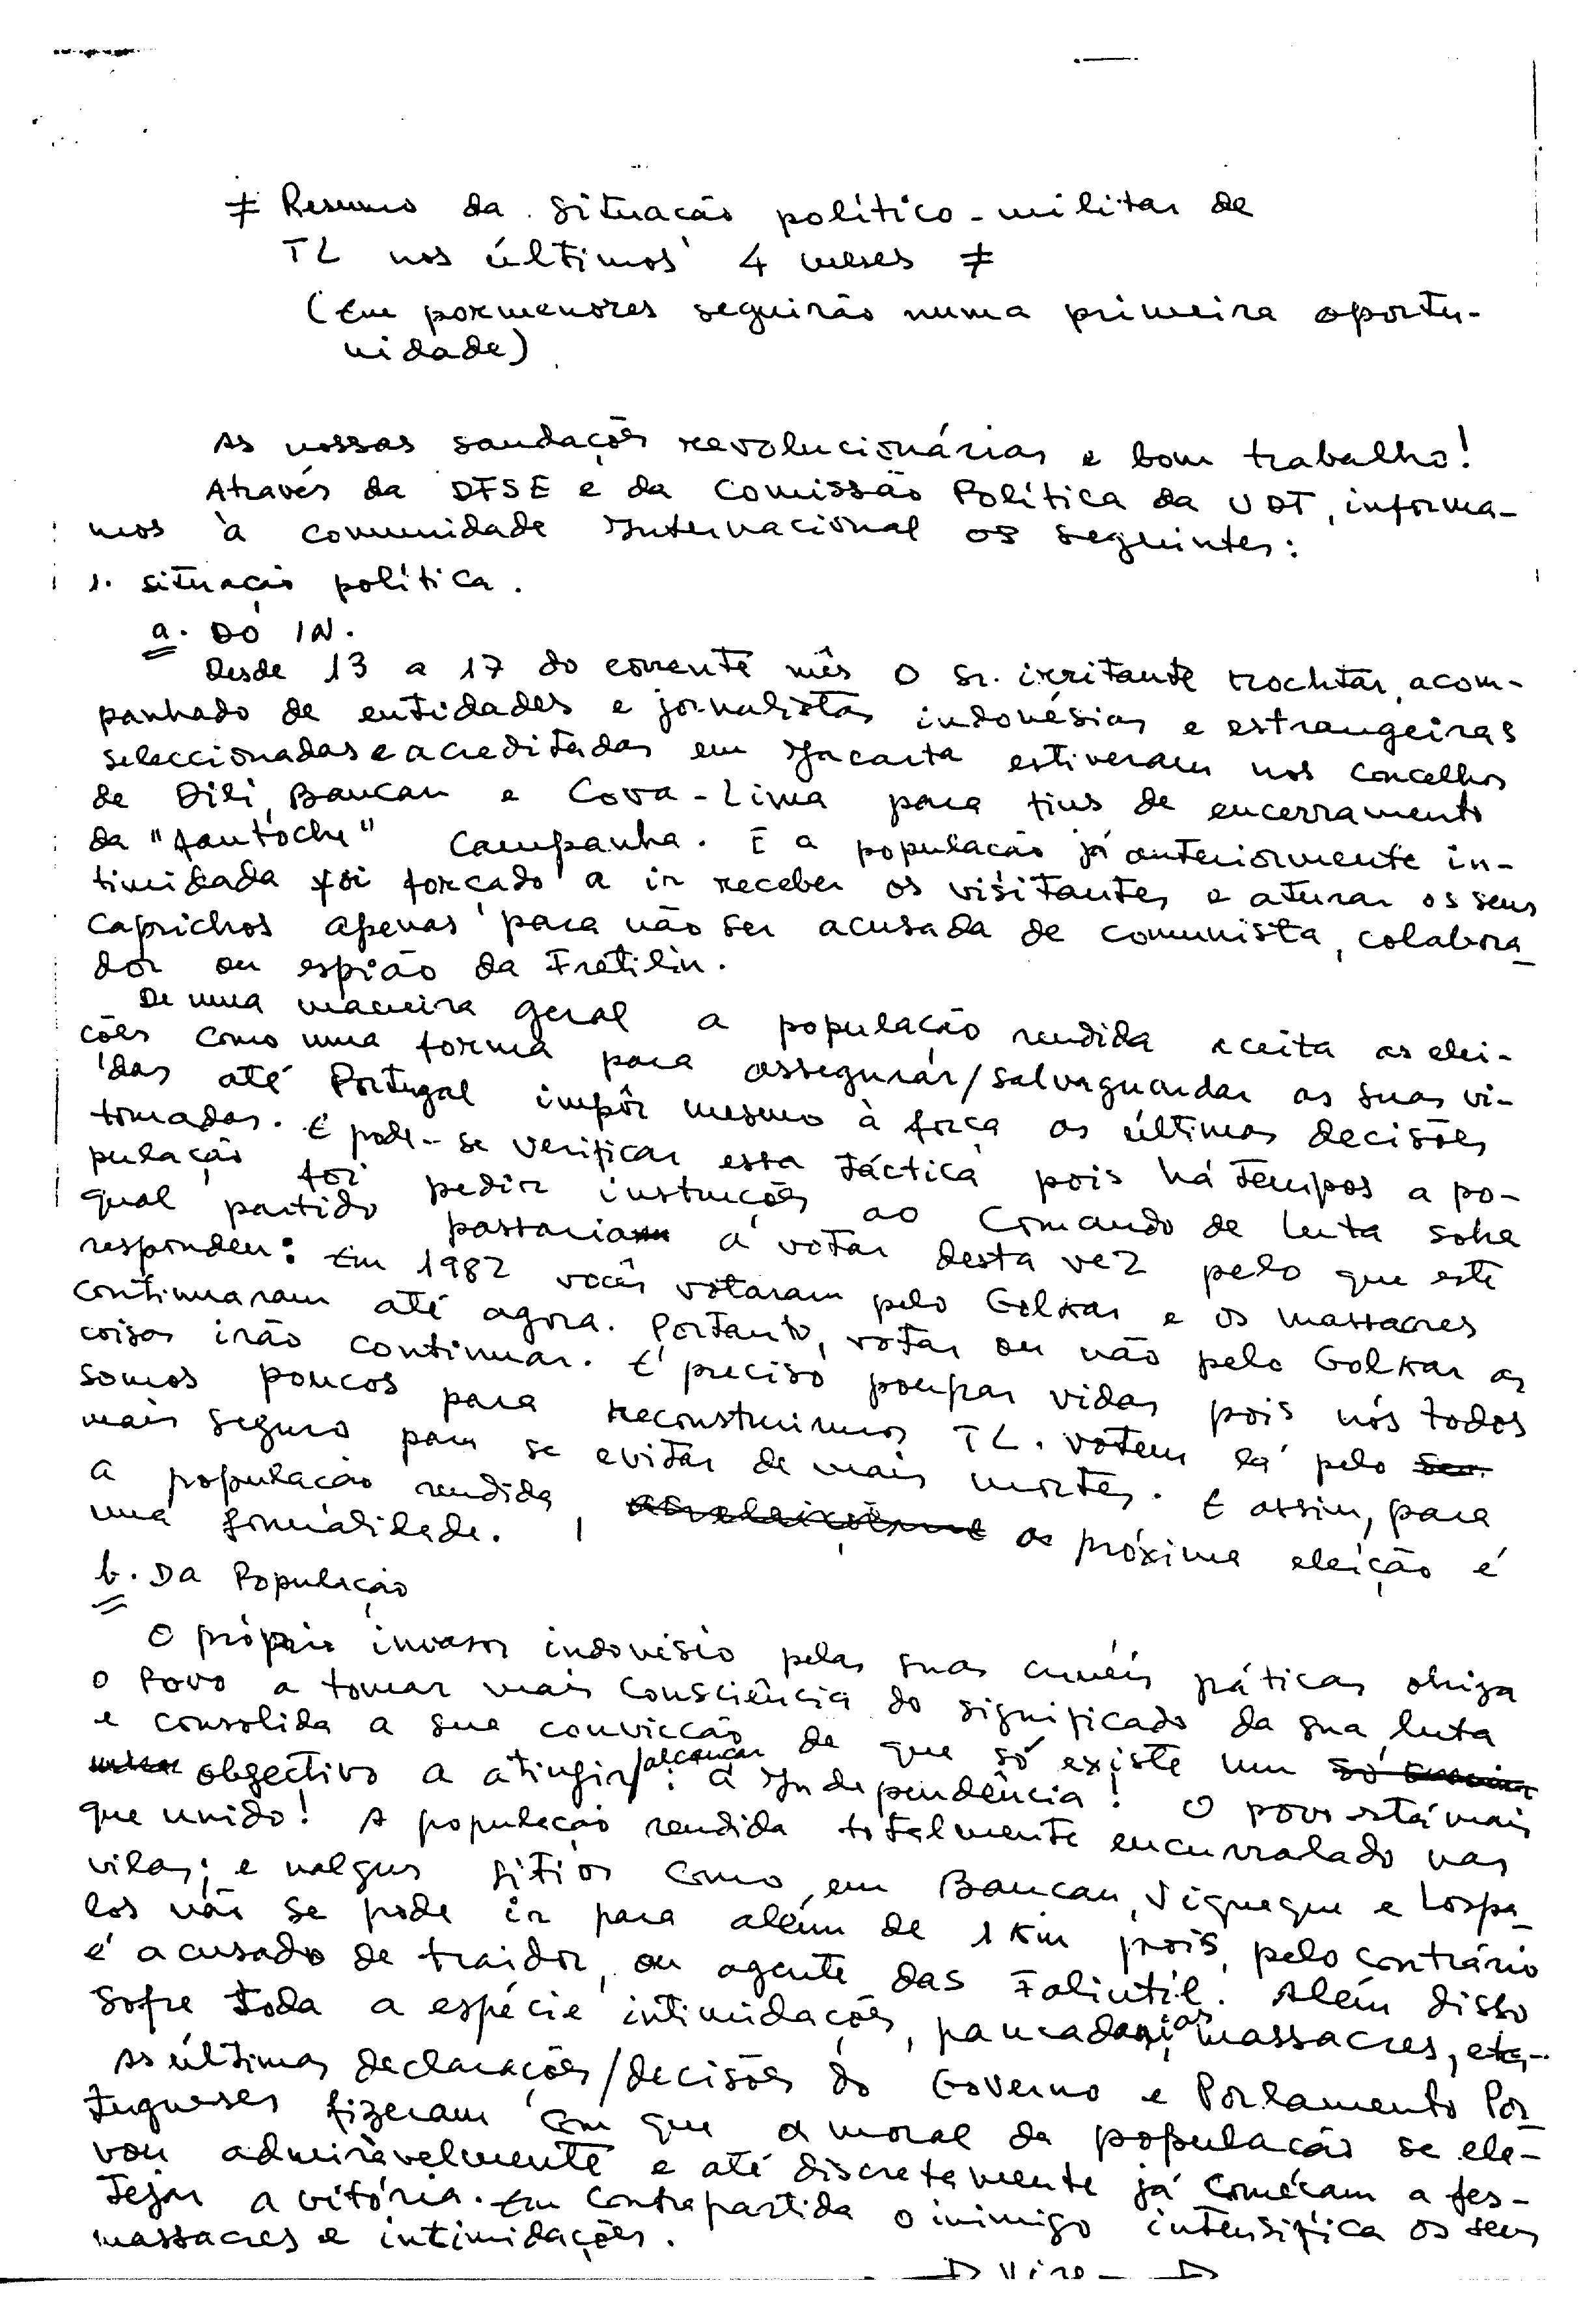 ≠ Resumo da situação político-militar de
TL nos últimos 4 meses ≠
(Em pormenores seguirão numa primeira oportu-
nidade)
As nossas saudações revolucionárias e bom trabalho!
Através da DFSE e da Comissão Política da UDT, informa-
mos à comunidade Internacional os seguintes:
1. situação política.
a. DO IN.
Desde 13 a 17 do corrente mês o sr. irritante Mochtar, acom-
panhado de entidades e jornalistas indonésias e estrangeiras
seleccionadas e acreditadas em Jacarta estiveram nos concelhos
de Dili, Baucau e Cova-Lima para fins de encerramento
da "fantoche" campanha. E a população já anteriormente in-
timidada foi forçado a ir receber os visitantes e aturar os seus
caprichos apenas para não ser acusada de comunista, colabora-
dor ou espião da Fretilin.
De uma maneira geral a população rendida aceita as elei-
ções como uma forma para assegurar/salvaguardar as suas vi-
das até Portugal impôr mesmo à força as últimas decisões
tomadas. E pode-se verificar essa táctica pois há tempos a po-
pulação foi pedir instruções ao Comando de luta sobre
qual partido passaria a votar desta vez pelo que este
respondeu: Em 1982 vocês votaram pelo Golkar e os massacres
continuaram até agora. Portanto, votar ou não pelo Golkar as
coisas irão continuar. É preciso poupar vidas pois nós todos
somos poucos para reconstruirmos TL. Votem lá pelo
mais seguro para se evitar de mais mortes. E assim, para
a população rendida, a próxima eleição é
uma formalidade.
b. Da População
O próprio invasor indonésio pelas suas cruéis práticas obriga
o Povo a tomar mais consciência do significado da sua luta
e consolida a sua convicção de que só existe um
objectivo a atingir/alcançar: a Independência! O povo está mais
que unido! A população rendida totalmente encurralado nas
vilas; e nalgus sitios como, em Baucau, Viqueque e Lospa-
los não se pode ir para além de 1 Km pois, pelo contrário
é acusado de traidor, ou agente das Falintil. Além disso
sofre toda a espécie intimidações, pancadarias, massacres, etc..
As últimas declarações/decisões do Governo e Parlamento Por-
tugueses fizeram com que a moral da população se ele-
vou admiràvelmente e até discretamente já começam a fes-
tejar a vitória. Em contrapartida o inimigo intensifica os seus
massacres e intimidações.
Vire